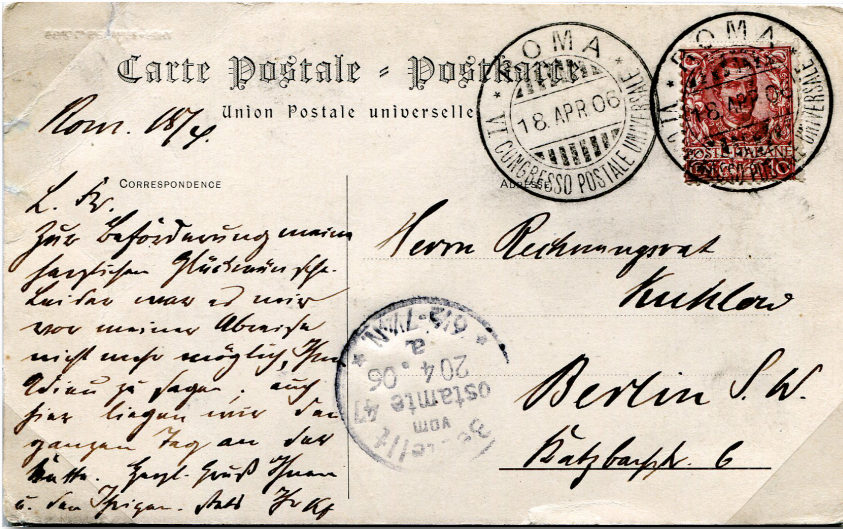 Carte Postale - Postkarte
Union Postale universelle
ROMA
VI CONGRESSO POSTALE UNIVERSALE
18.APR.06
ROMA
VI CONGRESSO POSTALE UNIVERSALE
18.APR.06
POSTE ITALIANE
10
Rom. 18/4.
CORRESPONDENCE
ADRESSE
L. Fr.
Zur Beförderung meine
herzlichen Glückwünsche.
Leider war es mir
vor meiner Abreise
nicht mehr möglich, Ihnen
Adieu zu sagen. auch
hier liegen wir den
ganzen Tag an der
Kette. Herzl. Gruß Ihnen
u. den Ihrigen. Stets Ihr
Herrn Rechnungsrat
Kuhlow
Berlin S. W.
Katzbachstr. 6
Bestellt
vom
Postamte 47
20 4. 06
a